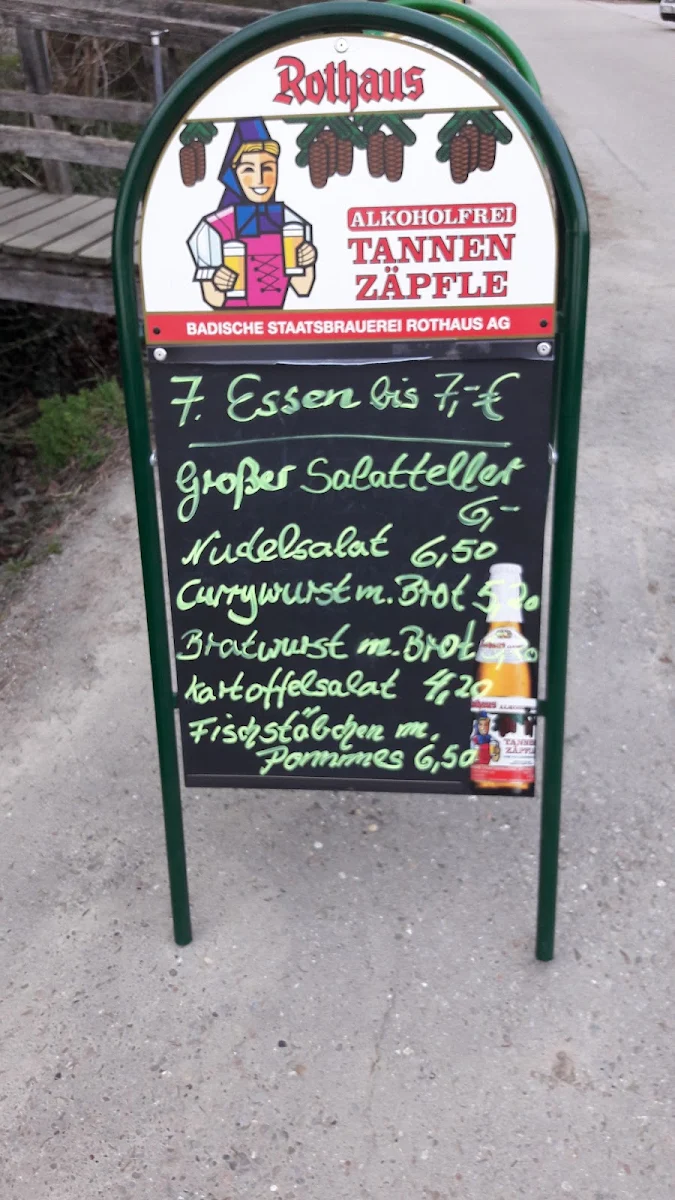 Rothaus
ALKOHOLFREI
TANNEN
ZÄPFLE
BADISCHE STAATSBRAUEREI ROTHAUS AG
7. Essen bis 7,-€
Großer Salatteller
6,-
Nudelsalat 6,50
Currywurst m. Brot 5,20
Bratwurst m. Brot
Kartoffelsalat 4,20
Fischstäbchen m.
Pommes 6,50
Rothaus
TANNEN
ZÄPFLE